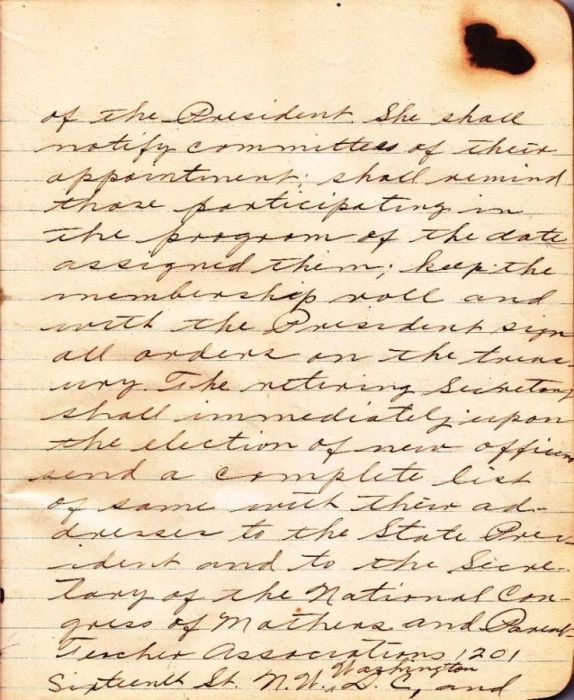 of the President. She shall
notify committees of their
appointment; shall remind
those participating in
the program of the date
assigned them; keep the
membership roll and
with the President sign
all orders on the treas-
ury. The retiring Secretary
shall immediately upon
the election of new officers
send a complete list
of same with their ad-
dresses to the State Pres-
ident and to the Secre-
tary of the National Con-
gress of Mothers and Parent-
Teacher Associations 1201
Washington
Sixteenth St. N.W., D.C., and